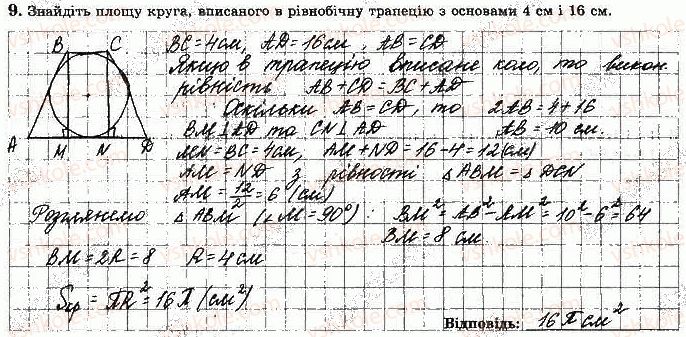 9. Знайдіть площу круга, вписаного в рівнобічну трапецію з основами 4 см і 16 см.
B C
A M N D
BC=4см, AD=16см, AB=CD
Якщо в трапецію вписане коло, то викон.
рівність AB+CD=BC+AD
Оскільки AB=CD, то 2AB=4+16
BM⊥AD та CN⊥AD AB=10 см.
MN=BC=4см, AM+ND=16-4=12(см)
AM=ND з рівності △ABM=△DCN
AM=12/2=6 (см)
Розглянемо △ABM (∠M=90°): BM²=AB²-AM²=10²-6²=64
BM=8 см
BM=2R=8 R=4см
Sкр=πR²=16π(см²)
Відповідь: 16π см²